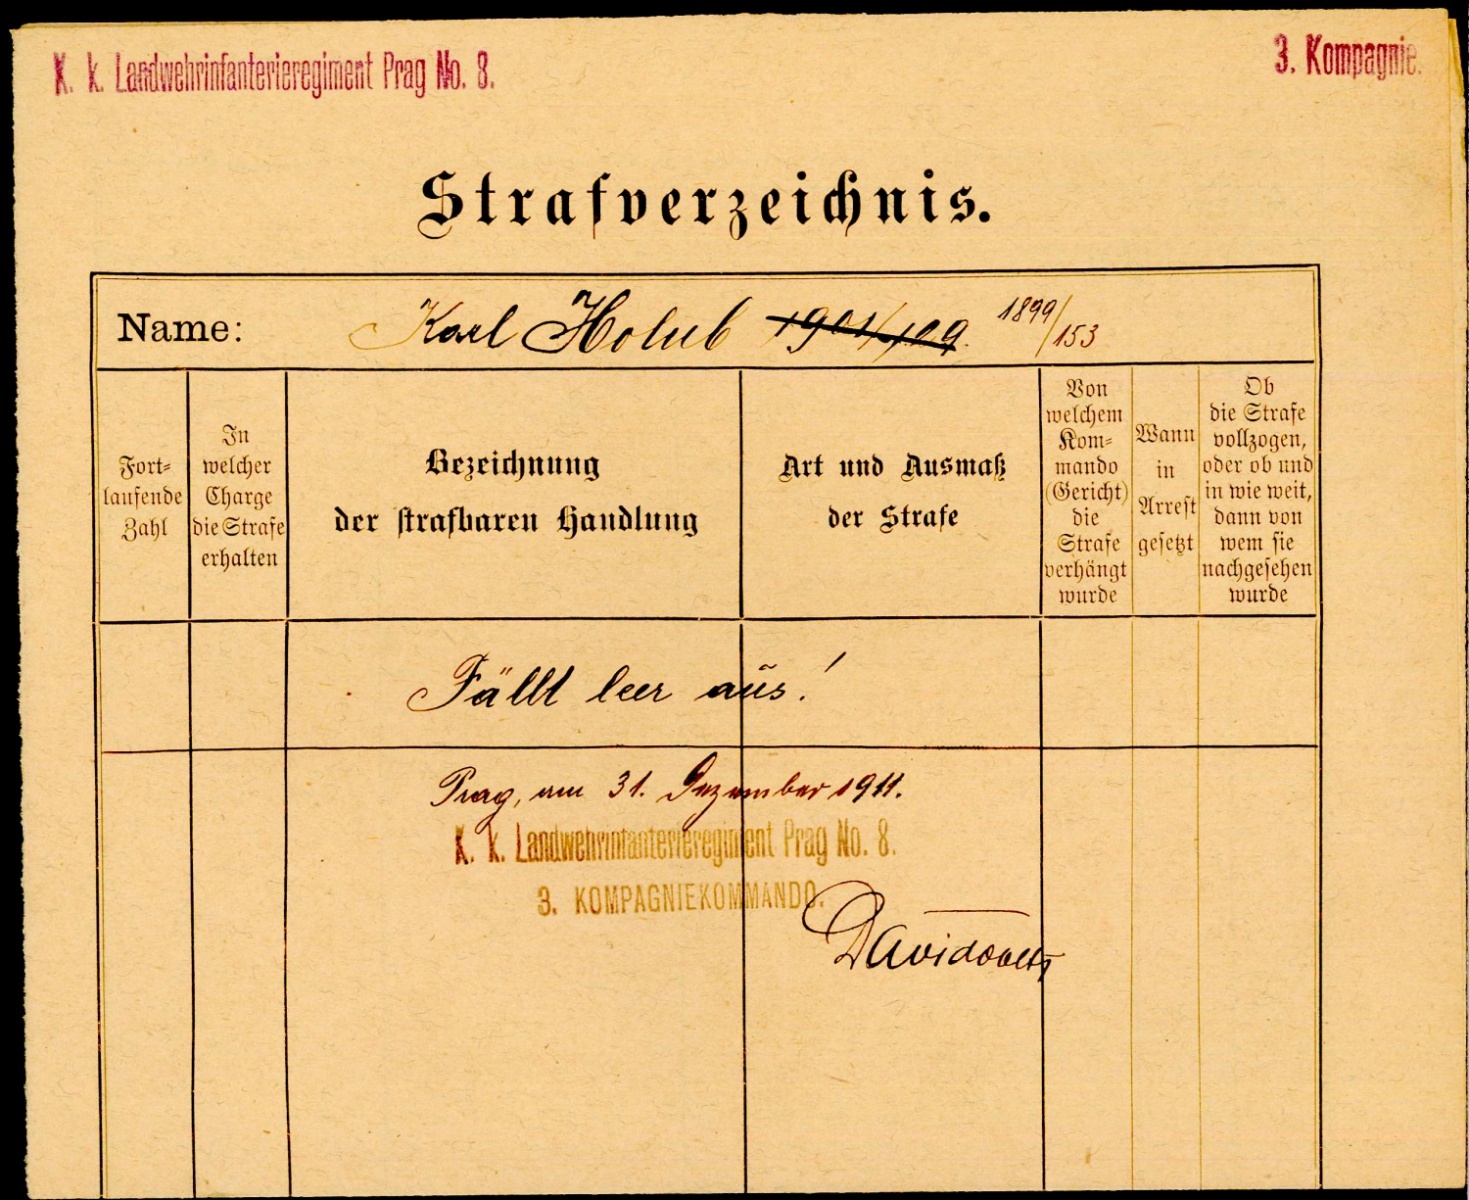 K. k. Landwehrinfanterieregiment Prag No. 8.
3. Kompagnie.
Strafverzeichnis.
Name: Karl Holub 1901/109. 1899/153
Fort-
laufende
Zahl
In
welcher
Charge
die Strafe
erhalten
Bezeichnung
der strafbaren Handlung
Art und Ausmaß
der Strafe
Von
welchem
Kom-
mando
(Gericht)
die
Strafe
verhängt
wurde
Wann
in
Arrest
gesetzt
Ob
die Strafe
vollzogen,
oder ob und
in wie weit,
dann von
wem sie
nachgesehen
wurde
Fällt leer aus!
Prag, am 31. Dezember 1911.
K. k. Landwehrinfanterieregiment Prag No. 8.
3. KOMPAGNIEKOMMANDO.